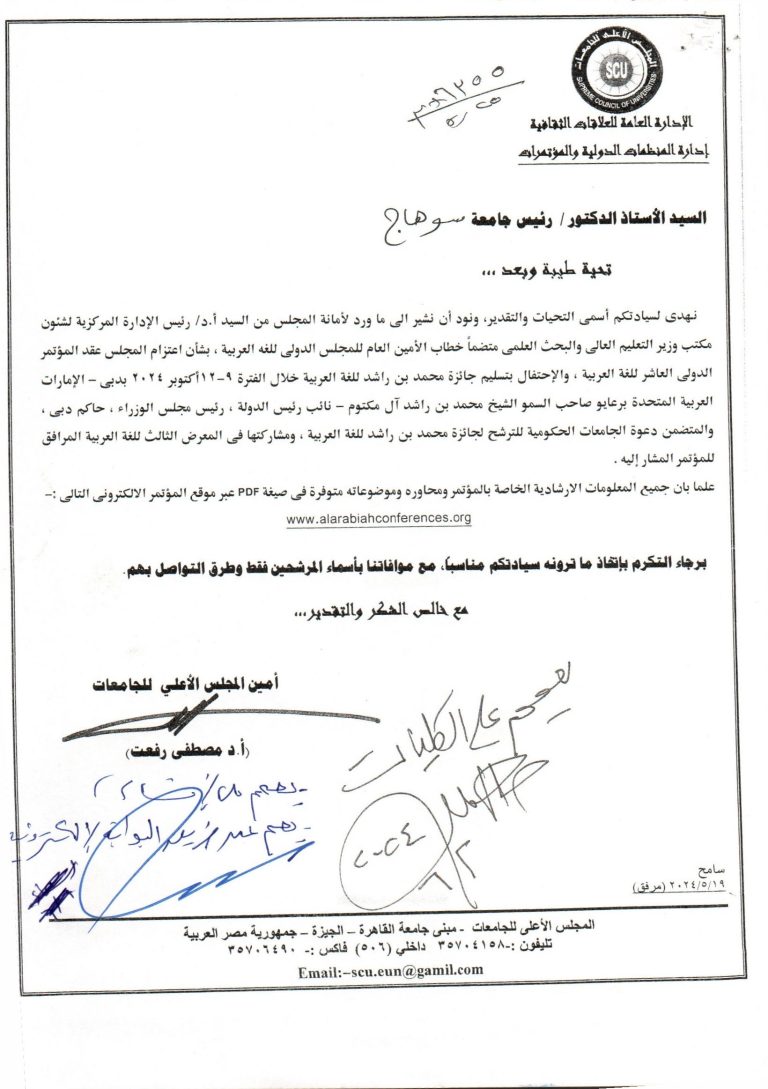 المجلس الأعلى للجامعات
SCU
SUPREME COUNCIL OF UNIVERSITIES
الإدارة العامة للعلاقات الثقافية
إدارة المنظمات الدولية والمؤتمرات
السيد الأستاذ الدكتور/ رئيس جامعة سوهاج
تحية طيبة وبعد ،،،
نهدى لسيادتكم أسمى التحيات والتقدير، ونود أن نشير الى ما ورد لأمانة المجلس من السيد أ.د/ رئيس الإدارة المركزية لشئون
مكتب وزير التعليم العالى والبحث العلمى متضماً خطاب الأمين العام للمجلس الدولى للغه العربية ، بشأن اعتزام المجلس عقد المؤتمر
الدولى العاشر للغة العربية ، والإحتفال بتسليم جائزة محمد بن راشد للغة العربية خلال الفترة ٩-١٢أكتوبر ٢٠٢٤ بدبى – الإمارات
العربية المتحدة برعايو صاحب السمو الشيخ محمد بن راشد آل مكتوم – نائب رئيس الدولة ، رئيس مجلس الوزراء ، حاكم دبى ،
والمتضمن دعوة الجامعات الحكومية للترشح لجائزة محمد بن راشد للغة العربية ، ومشاركتها فى المعرض الثالث للغة العربية المرافق
للمؤتمر المشار إليه .
علما بان جميع المعلومات الارشادية الخاصة بالمؤتمر ومحاوره وموضوعاته متوفرة فى صيغة PDF عبر موقع المؤتمر الالكترونى التالى :–
www.alarabiahconferences.org
برجاء التكرم بإتخاذ ما ترونه سيادتكم مناسباً، مع موافاتنا بأسماء المرشحين فقط وطرق التواصل بهم.
مع خالص الشكر والتقدير،،،
أمين المجلس الأعلي للجامعات
(أ.د مصطفى رفعت)
يعمم على الكليات
٢٠٢٤
البوابة الإلكترونية
سامح
٢٠٢٤/٥/١٩ (مرفق)
المجلس الأعلى للجامعات - مبنى جامعة القاهرة – الجيزة – جمهورية مصر العربية
تليفون :-٣٥٧٠٤١٥٨ داخلي (٥٠٦) فاكس :- ٣٥٧٠٦٤٩٠
Email:–scu.eun@gamil.com